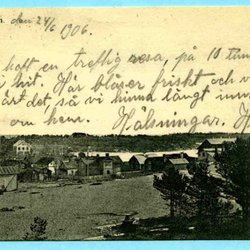 den 24/6 1906.
haft en treflig resa, på 10 tim
hit. Här blåser friskt och v
det, så vi hinna långt inn
om hem. Hälsningar. H